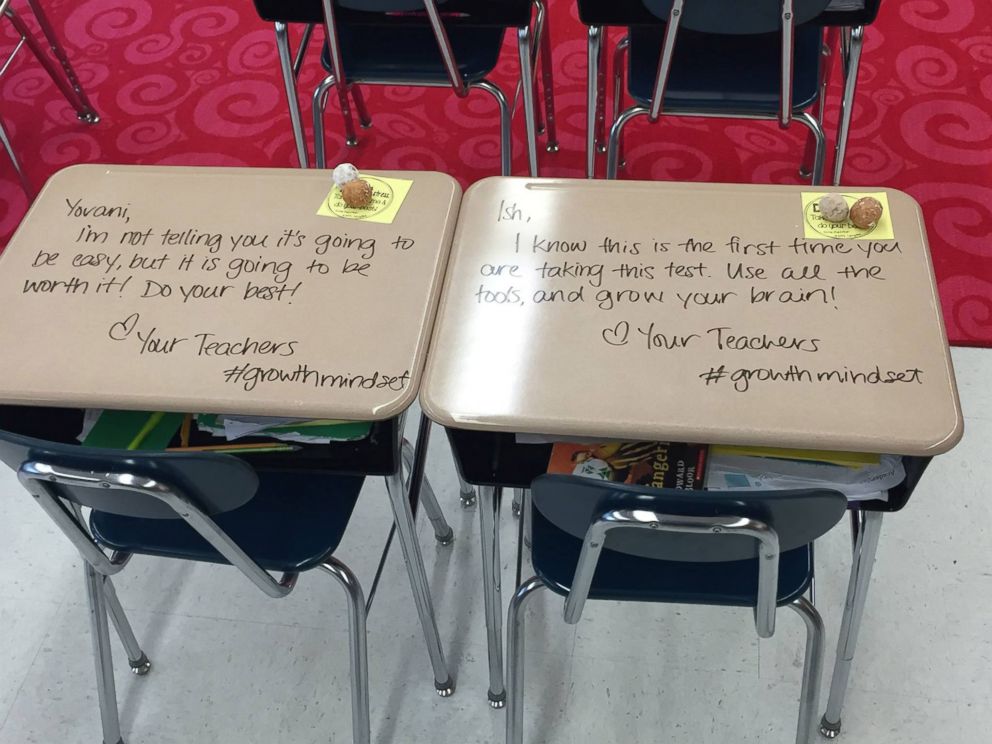 Yovani,
I'm not telling you it's going to
be easy, but it is going to be
worth it! Do your best!
♡ Your Teachers
#growthmindset
Ish,
I know this is the first time you
are taking this test. Use all the
tools, and grow your brain!
♡ Your Teachers
#growthmindset
do your best!
do your